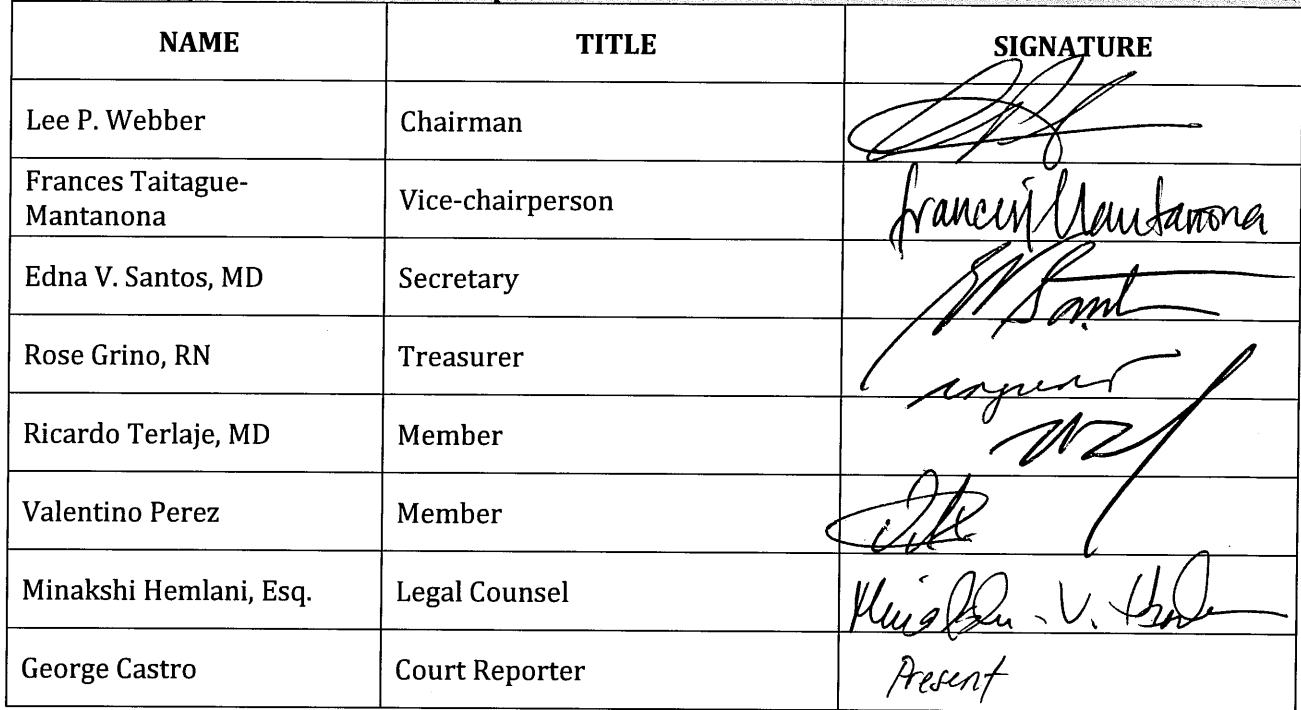 NAME TITLE SIGNATURE
Lee P. Webber Chairman
Frances Taitague-
Mantanona Vice-chairperson Frances Mantanona
Edna V. Santos, MD Secretary
Rose Grino, RN Treasurer
Ricardo Terlaje, MD Member
Valentino Perez Member
Minakshi Hemlani, Esq. Legal Counsel
George Castro Court Reporter Present